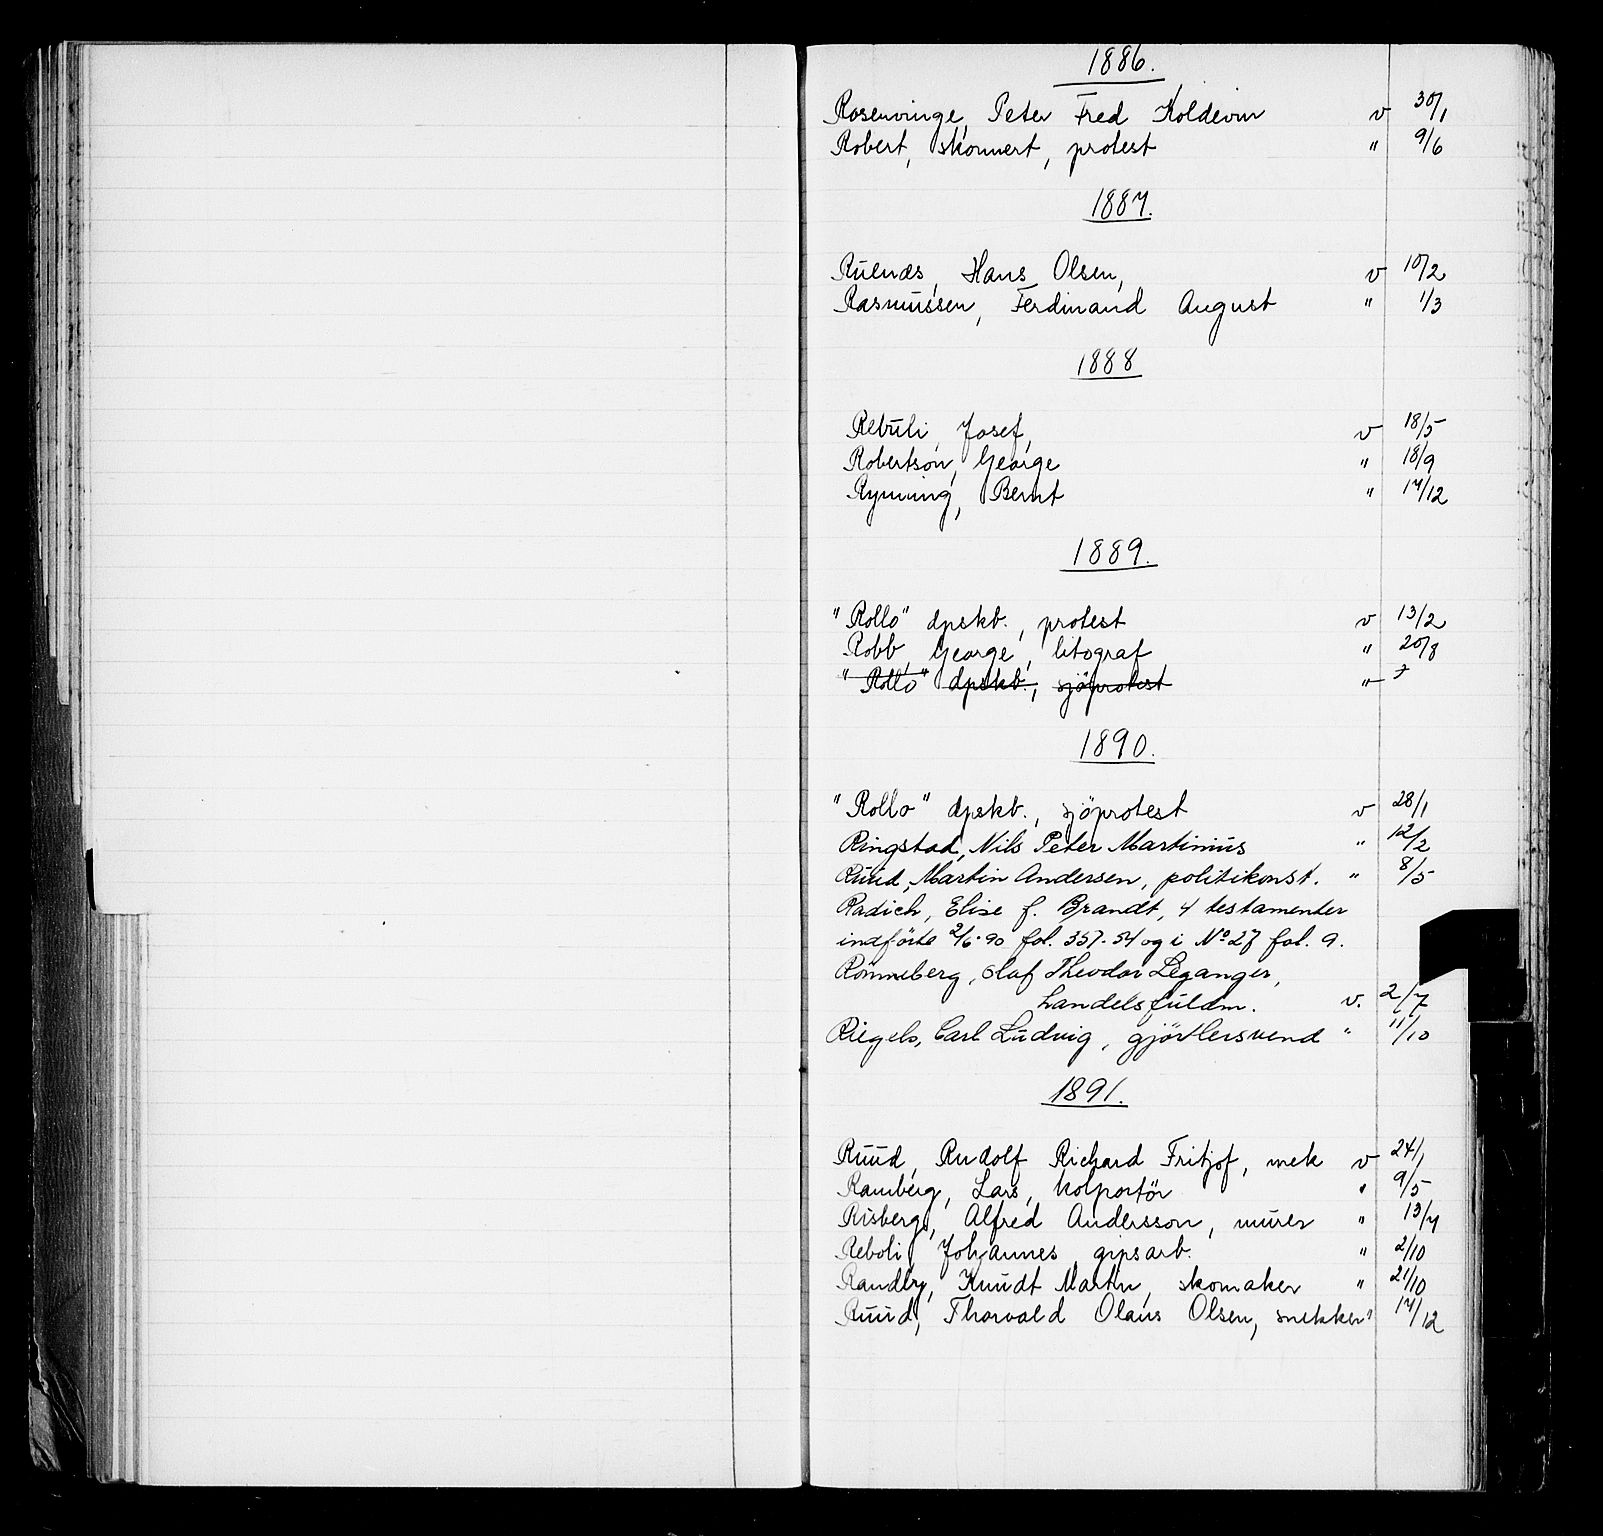 1886.
Rosenvinge, Peter Fred Koldevin v 30/1
Robert, skonnert, protest " 9/6
1887.
Ruenæs, Hans Olsen, v 10/2
Rasmussen, Ferdinand August " 1/3
1888
Rebuli, Josef, v 18/5
Robertson, George " 18/9
Rynning, Bernt " 17/12
1889.
"Rollo" dpskb., protest v 13/2
Robb, George, litograf " 20/8
"Rollo" dpskb., sjöprotest "
1890.
"Rollo" dpskb., sjöprotest v 28/1
Ringstad, Nils Peter Martinius " 12/2
Ruud, Martin Andersen, politikonst. " 8/5
Radich, Elise f. Brandt, 4 testamenter
indförte 2/6.90 fol. 357.54 og i No 27 fol. 9.
Rönneberg, Olaf Theodor Leganger,
handelsfuldm. v. 2/7
Riegels, Carl Ludvig, gjörtlersvend " 11/10
1891.
Ruud, Rudolf Richard Fritjof, mek v 24/1
Ramberg, Lars, kolportör " 9/5
Risberg, Alfred Andersson, murer " 13/7
Reboli, Johannes, gipsarb. " 2/10
Randby, Knudt Martin, skomaker " 21/10
Ruud, Thorvald Olaus Olsen, snekker " 17/12